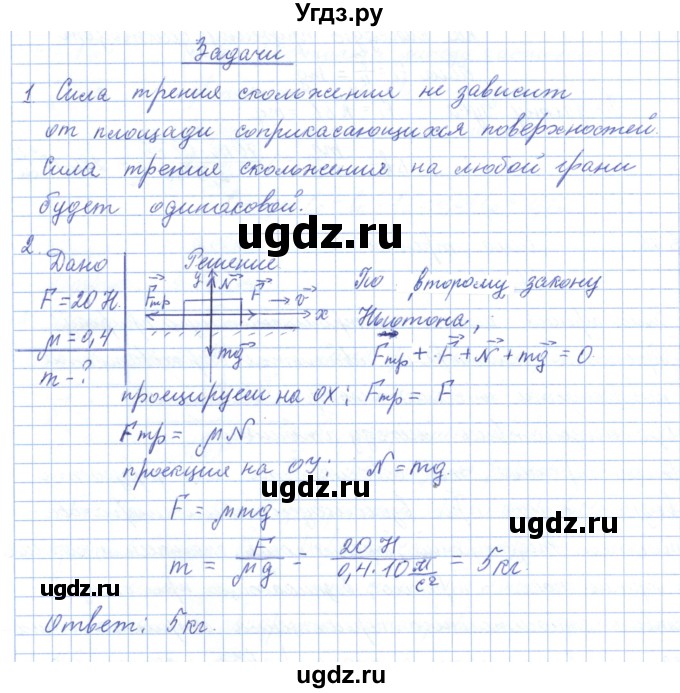 Угдз.ру
Задачи
1 Сила трения скольжения не зависит
от площади соприкасающихся поверхностей.
Сила трения скольжения на любой грани
будет одинаковой.
ugdz.ru
2.
Дано
F = 20 Н.
μ = 0,4
m - ?
Решение
y N⃗
F⃗тр F⃗ → v⃗
x
mg⃗
По второму закону
Ньютона;
F⃗тр + F⃗ + N⃗ + mg⃗ = 0
ugdz.ru
проецируем на OX; Fтр = F
Fтр = μN
проекция на OY; N = mg.
ugdz.ru
F = μmg.
m = F / μg = 20 Н / 0,4·10 м/с² = 5 кг.
ugdz.ru
ugdz.ru
Ответ; 5 кг.
ugdz.ru